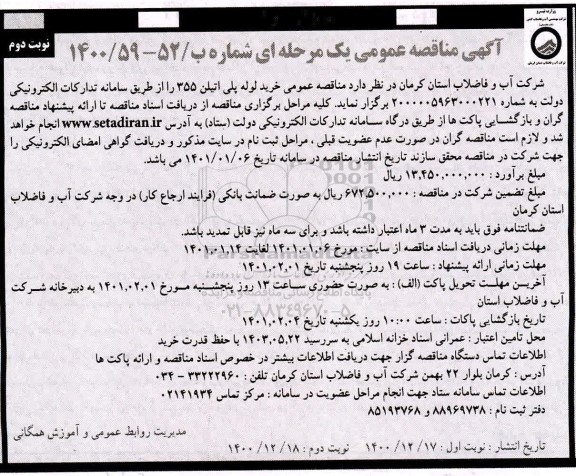 وزارت نیرو
نوبت دوم
آگهی مناقصه عمومی یک مرحله ای شماره ب/۵۲-۱۴۰۰/۵۹
شرکت آب و فاضلاب استان کرمان در نظر دارد مناقصه عمومی خرید لوله پلی اتیلن ۳۵۵ را از طریق سامانه تدارکات الکترونیکی
دولت به شماره ۲۰۰۰۰۰۵۹۶۳۰۰۰۲۲۱ برگزار نماید. کلیه مراحل برگزاری مناقصه از دریافت اسناد مناقصه تا ارائه پیشنهاد مناقصه
گران و بازگشایی پاکت ها از طریق درگاه سامانه تدارکات الکترونیکی دولت (ستاد) به آدرس www.setadiran.ir انجام خواهد
شد و لازم است مناقصه گران در صورت عدم عضویت قبلی ، مراحل ثبت نام در سایت مذکور و دریافت گواهی امضای الکترونیکی را
جهت شرکت در مناقصه محقق سازند تاریخ انتشار مناقصه در سامانه تاریخ ۱۴۰۱/۰۱/۰۶ می باشد.
مبلغ برآورد : ۱۳,۴۵۰,۰۰۰,۰۰۰ ریال
مبلغ تضمین شرکت در مناقصه : ۶۷۲,۵۰۰,۰۰۰ ریال به صورت ضمانت بانکی (فرایند ارجاع کار) در وجه شرکت آب و فاضلاب
استان کرمان
ضمانتنامه فوق باید به مدت ۳ ماه اعتبار داشته باشد و برای سه ماه نیز قابل تمدید باشد.
مهلت زمانی دریافت اسناد مناقصه از سایت : مورخ ۱۴۰۱.۰۱.۰۶ لغایت ۱۴۰۱.۰۱.۱۴
مهلت زمانی ارائه پیشنهاد : ساعت ۱۹ روز پنجشنبه تاریخ ۱۴۰۱.۰۲.۰۱
آخرین مهلت تحویل پاکت (الف) : به صورت حضوری ساعت ۱۳ روز پنجشنبه مورخ ۱۴۰۱.۰۲.۰۱ به دبیرخانه شرکت
آب و فاضلاب استان
تاریخ بازگشایی پاکات : ساعت ۱۰:۰۰ روز یکشنبه تاریخ ۱۴۰۱.۰۲.۰۴
محل تامین اعتبار : عمرانی اسناد خزانه اسلامی به سررسید ۱۴۰۳.۰۵.۲۲ با حفظ قدرت خرید
اطلاعات تماس دستگاه مناقصه گزار جهت دریافت اطلاعات بیشتر در خصوص اسناد مناقصه و ارائه پاکت ها
آدرس : کرمان بلوار ۲۲ بهمن شرکت آب و فاضلاب استان کرمان تلفن : ۳۳۲۲۲۹۶۰ - ۰۳۴
اطلاعات تماس سامانه ستاد جهت انجام مراحل عضویت در سامانه : مرکز تماس ۰۲۱۴۱۹۳۴
دفتر ثبت نام : ۸۸۹۶۹۷۳۸ و ۸۵۱۹۳۷۶۸
مدیریت روابط عمومی و آموزش همگانی
تاریخ انتشار : نوبت اول : ۱۷ / ۱۲ / ۱۴۰۰ نوبت دوم : ۱۸ / ۱۲ / ۱۴۰۰
ParsNamadData
۰۲۱-۸۸۳۴۹۶۷۰-۵